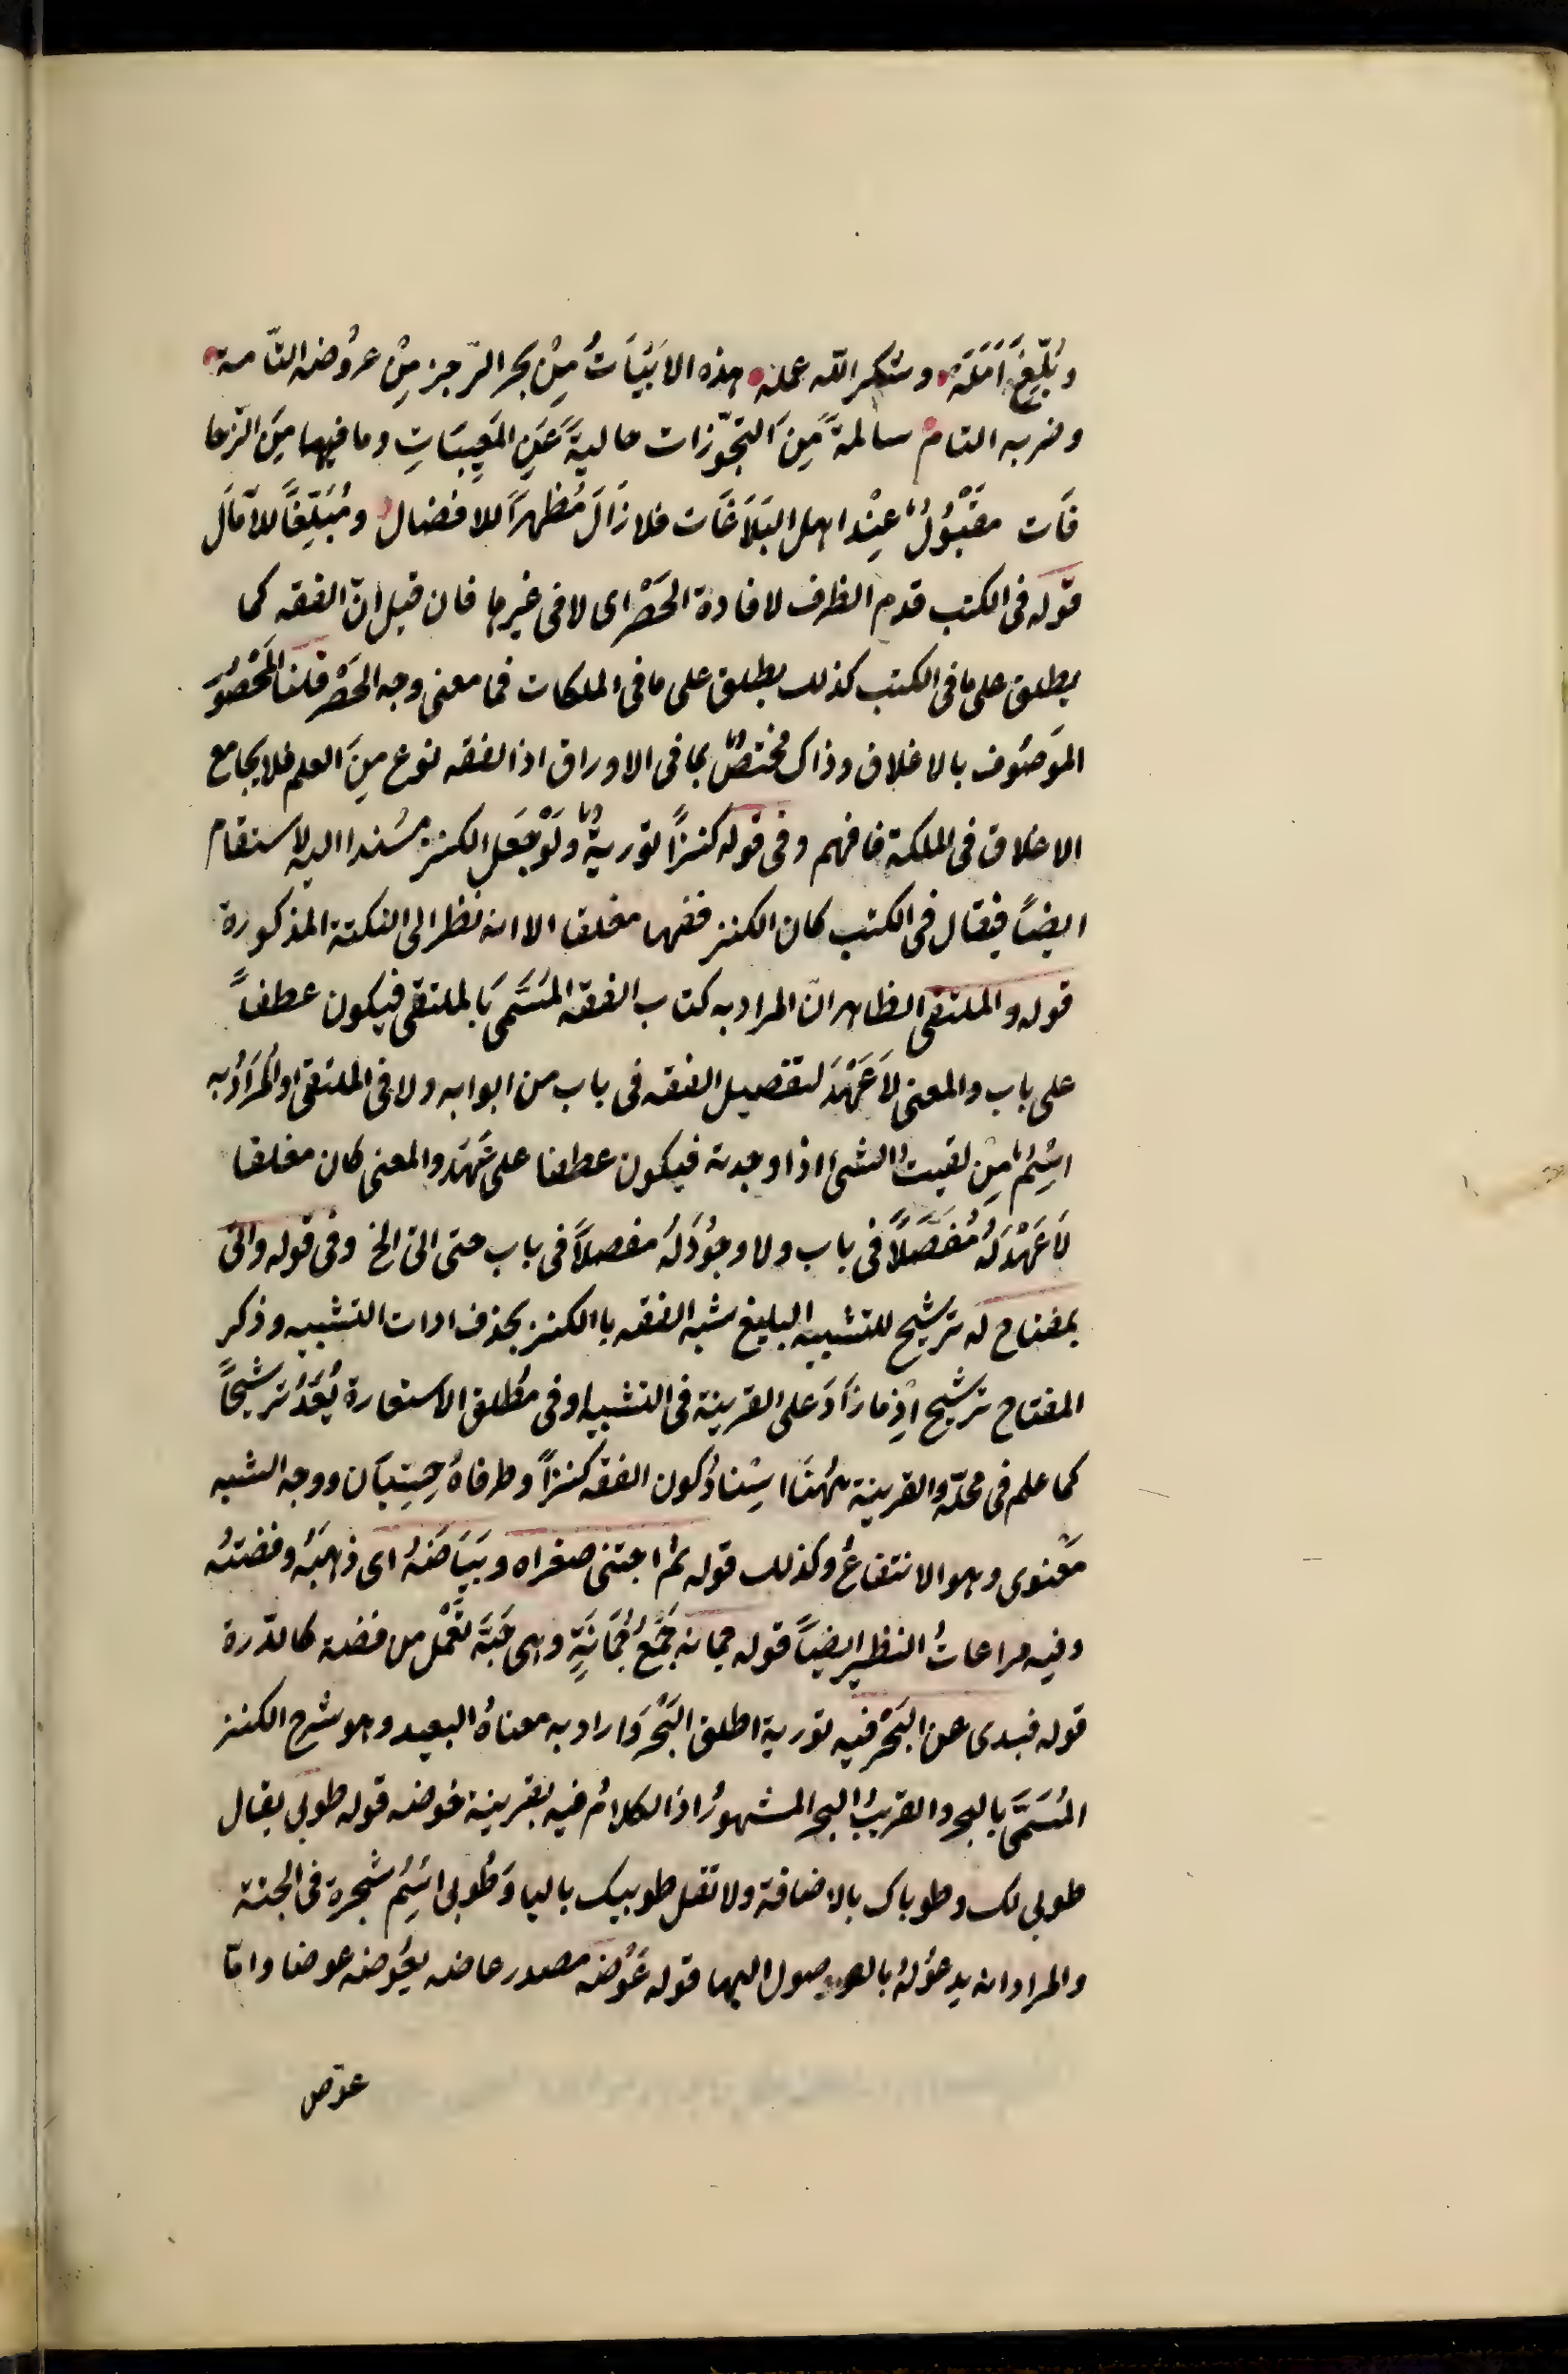 وبُلّغَ اَمَلَهُ وشكر الله عمله هذه الاَبْيَاتُ مِنْ بحر الرّجز مِنْ عروُضه التّامة
وضربه التام سالمةً مِنَ التجوّزات خاليةً عَنِ المَعِيبَاتِ وما فيها مِنَ الزحا
فَات مقبُولٌ عِنْد اهل البَلَاغَات فلا زَالَ مُظهِراً للافضال ومُبَلِّغاً للآمَال
قوله فى الكتب قدم الظرف لافادة الحَصْر اى لا فى غيرها فان قيل انّ الفقه كما
يطلق على ما فى الكتب كذلك يطلق على ما فى الملكات فما معنى وجه الحَصْر قلنا المَحْصُورُ
المَوصُوف بالاغلاق وذاك مختصٌ بما فى الاوراق اذ الفقه نوع مِنَ العلم فلا يجامع
الاغلاق فى الملكة فافهم وفى قوله كنزاً توريةٌ ولَوْ جَعَلَ الكنز مسُندا اليه لاستقام
ايضاً فيقال فى الكتب كان الكنز فقها مغلقا الا انه نظر الى النكتة المذكورة
قوله والملتقى الظاهر انّ المراد به كتاب الفقه المُسَمَّى بَالملتقى فيكون عطفاً
على باب والمعنى لاَ عَهْدَ لتفصيل الفقه فى باب من ابوابه ولا فى الملتقى او المُرَادُ به
اسِْمٌ مِن لقيتُ الشئ اذا وجدته فيكون عطفا على عَهْدَ والمعنى كان مغلقا
لَا عَهْدَ لَهُ مُفَصَلاً فى باب ولا وجُودَ لهُ مفصلاً فى باب حتى اتى الخ وفى قوله واتى
بمفتاح له ترشيح للتشبيه البليغ شبه الفقه باالكنز بحذف ادات التشبيه وذكر
المفتاح ترشيح اذِ ما زَادَ على القرينة فى التشبيه وفى مُطلق الاستعارة يُعَدُّ ترشيحاً
كما علم فى محلّه والقرينة هُهنَا اسِْنادُ كون الفقه كنزاً وطرفاهُ حِسّيَان ووجه الشبه
مَعْنوى وهو الانتفاعُ وكذلك قوله ثم اجتنى صفراه وبَيَاضَهُ اى ذهَبَه وفضتهُ
وفيه مراعاتُ النظير ايضاً قوله جمانه جَمْعُ جُمَانَةٍ وهى حَبَّه تُعْمَل من فضة كالدّرة
قوله فبدى عن البَحْر فيه تورية اطلق البَحْرَ واراد به معناهُ البعيد وهو شرح الكنز
المُسَمَّى بالبحر والقريبُ البحر المشهورُ اذ الكلامُ فيه بقرينة خوضه قوله طوبى يقال
طوبى لك وطوباك بالاضافة ولا تقل طوبيك باليا وَطُوبى اسِْم شجرة فى الجنة
والمراد انه يدعوُ لهُ بالوصول اليها قوله عَوْضه مصدر عاضه يعُوضه عوضا وامّا
عوّض